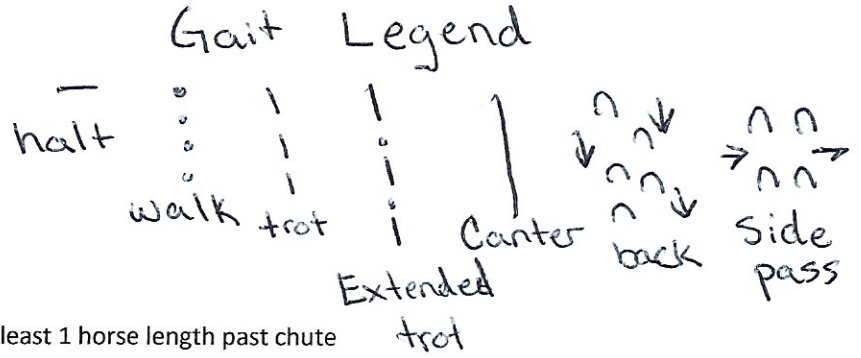 Gait Legend
halt
walk
trot
Extended
trot
Canter
back
Side
pass
least 1 horse length past chute